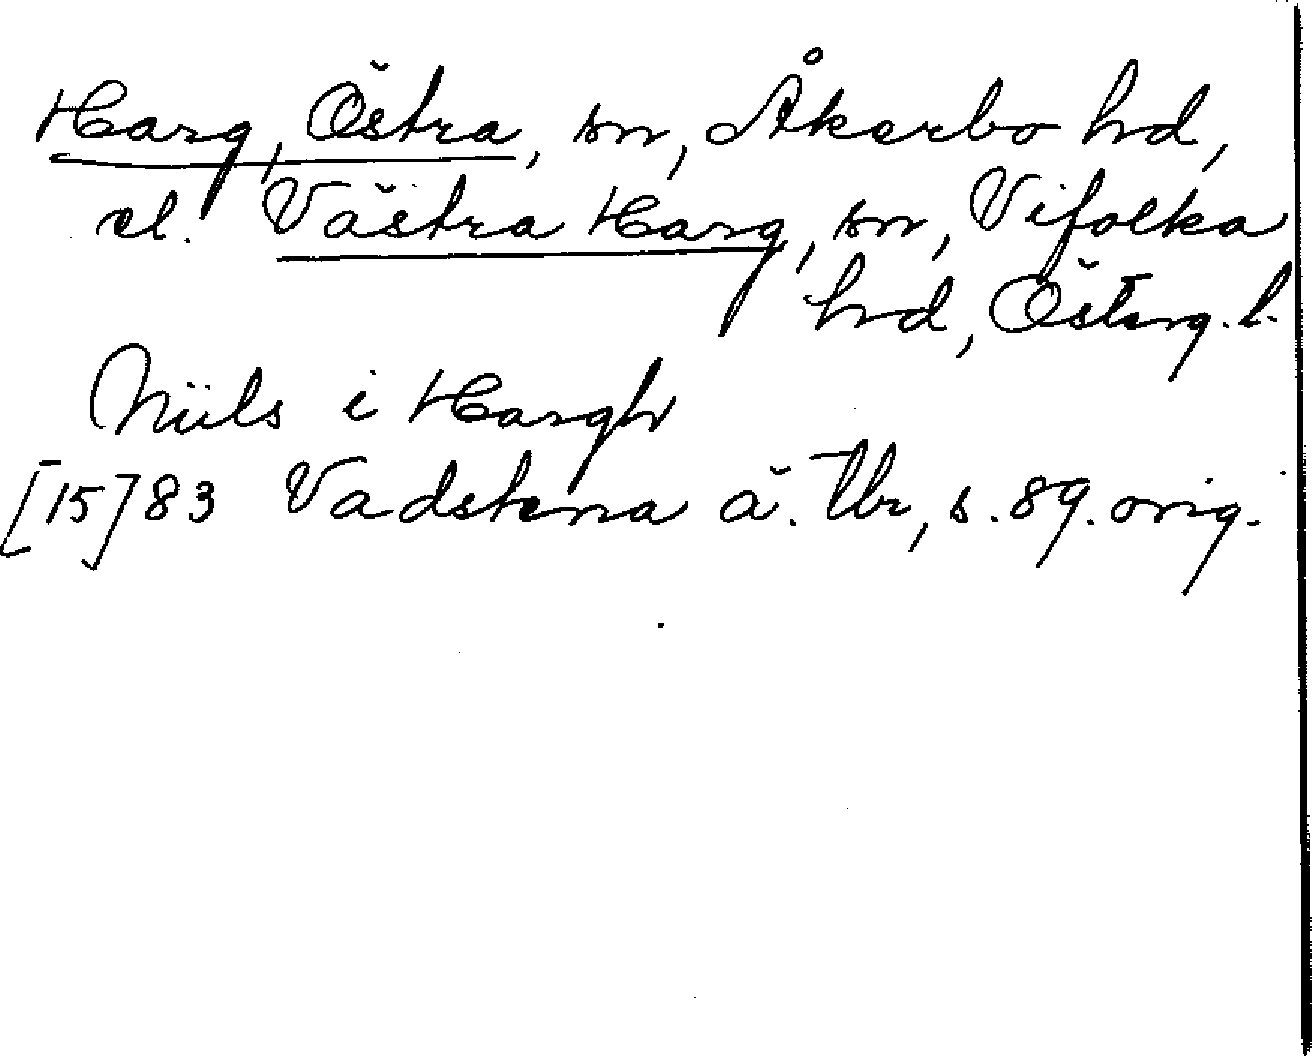 Harg, Östra, sn, Åkerbo hd,
el. Västra Harg, sn, Vifolka
hd, Österg. l.
Niils i Hargh
[15]83 Vadstena ä. tbr, s. 89. orig.